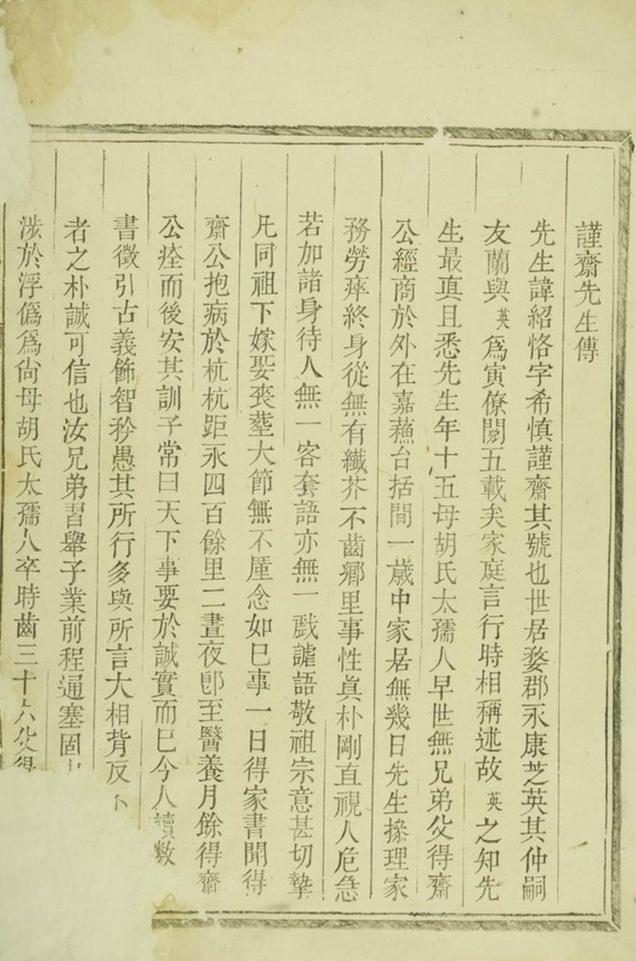 謹齋先生傳
先生諱紹恪字希慎謹齋其號也世居婺郡永康芝英其仲嗣
友蘭與英爲寅僚閱五載矣家庭言行時相稱述故英之知先
生最真且悉先生年十五母胡氏太孺人早世無兄弟父得齋
公經商於外在嘉蘓台括間一歲中家居無幾日先生操理家
務勞瘁終身從無有纖芥不齒鄉里事性眞朴剛直視人危急
若加諸身待人無一客套語亦無一戲謔語敬祖宗意甚切摯
凡同祖下嫁娶喪塟大節無不廑念如已事一日得家書聞得
齋公抱病於杭杭距永四百餘里二晝夜卽至醫養月餘得齋
公痊而後安其訓子常曰天下事要於誠實而已今人讀數
書徵引古義飾智矜愚其所行多與所言大相背反
者之朴誠可信也汝兄弟習舉子業前程通塞固
涉於浮僞爲尙母胡氏太孺人卒時齒三十六父得